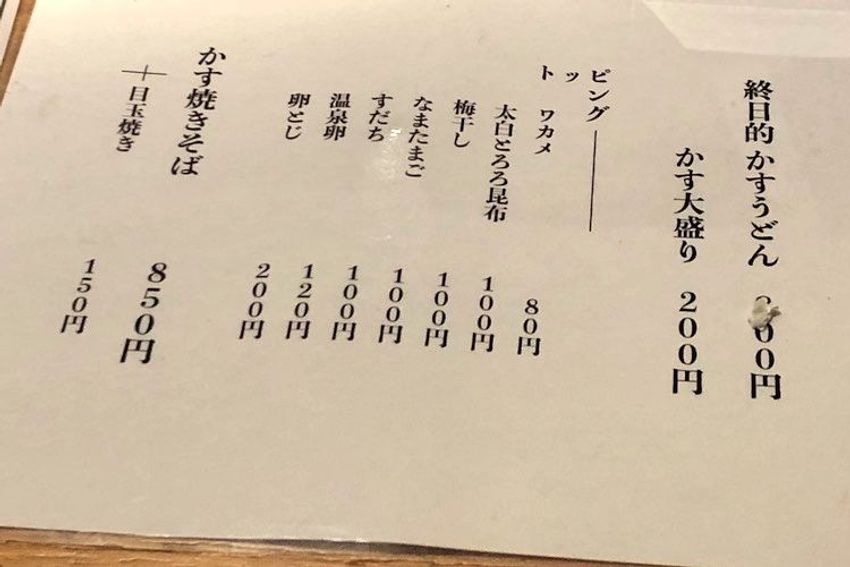 終日的 かすうどん
かす大盛り 200円
ピング
ッ
ト ワカメ 80円
太白とろろ昆布 100円
梅干し 100円
なまたまご 100円
すだち 100円
温泉卵 120円
卵とじ 200円
かす焼きそば 850円
+目玉焼き 150円